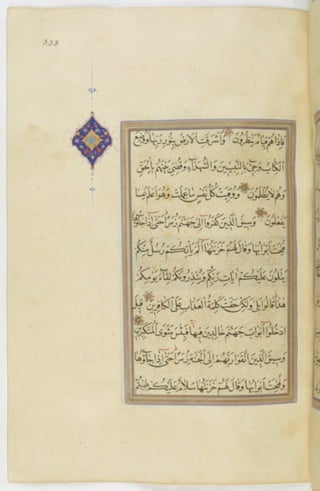 338
فاذا هم قيام ينظرون واشرقت الارض بنور ربها ووضع
الكتاب وجیء بالنبيين والشهداء وقضی بينهم بالحق
وهم لا يظلمون ووفيت كل نفس ما عملت وهو اعلم بما
يفعلون وسيق الذين كفروا الی جهنم زمرا حتی اذا جاؤها
فتحت ابوابها وقال لهم خزنتها الم ياتكم رسل منكم
يتلون عليكم ايات ربكم وينذرونكم لقاء يومكم
هذا قالوا بلی ولكن حقت كلمة العذاب علی الكافرين قيل
ادخلوا ابواب جهنم خالدين فيها فبئس مثوی المتكبرين
وسيق الذين اتقوا ربهم الی الجنة زمرا حتی اذا جاؤها
وفتحت ابوابها وقال لهم خزنتها سلام عليكم طبتم